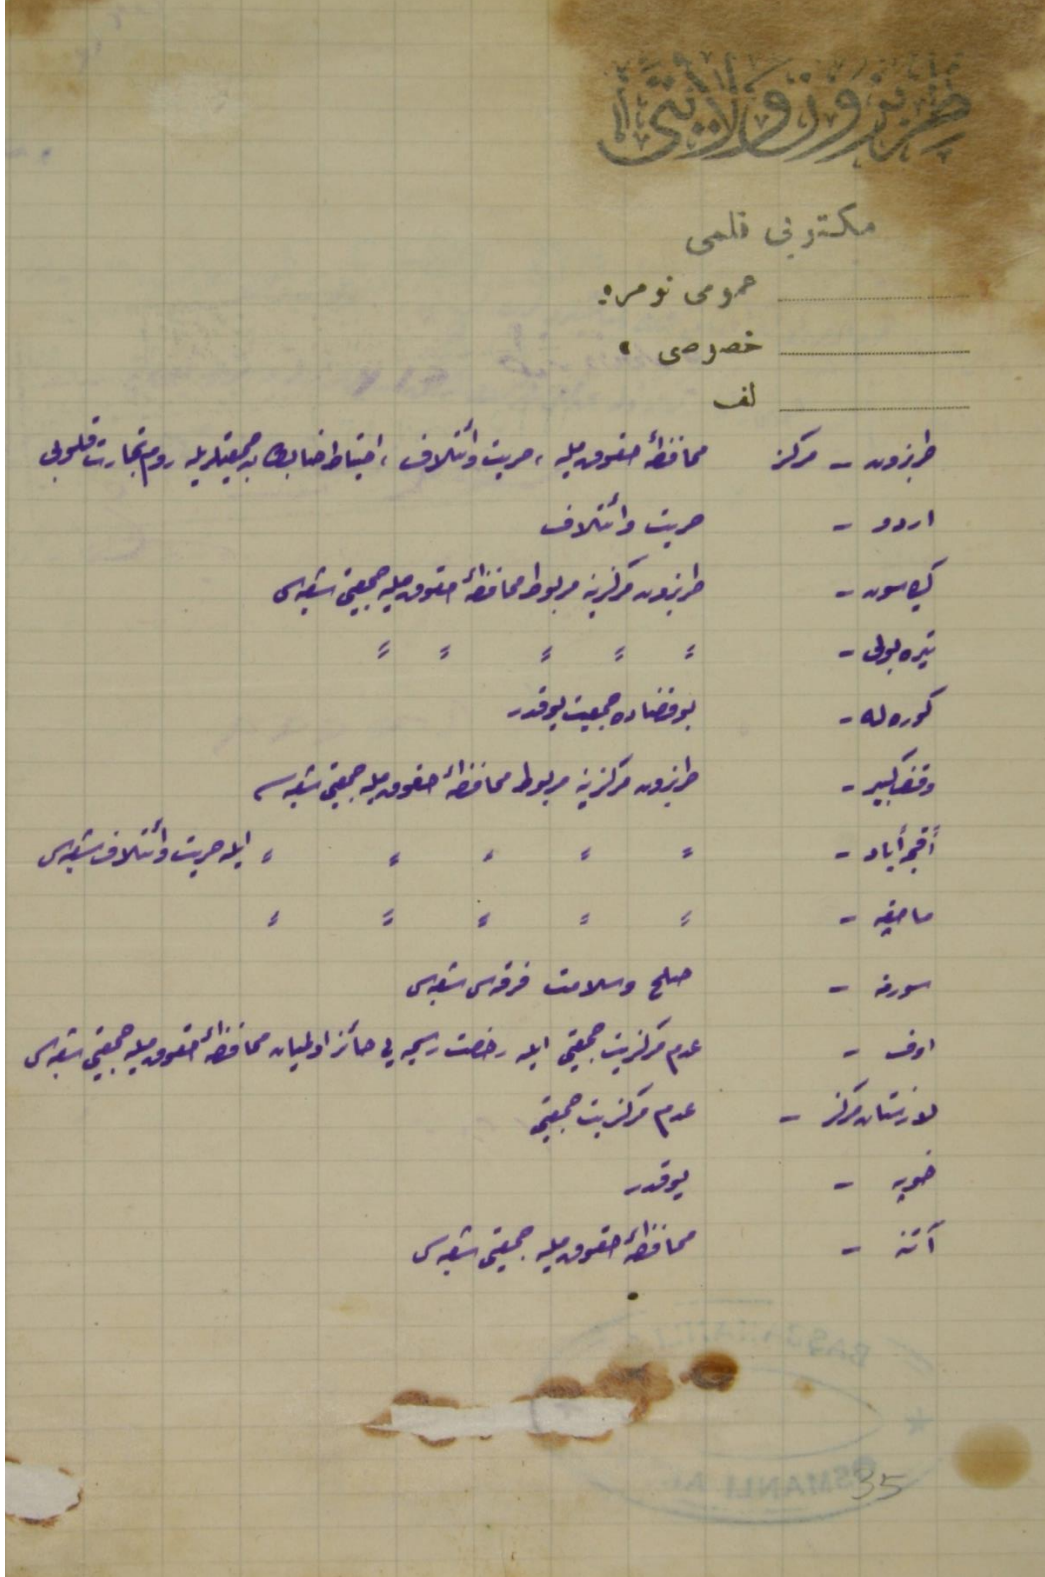 طربزون ولايتى
مكتوبى قلمى
عمومى نومرو
خصوصى »
لف
طربزون - مركز محافظۀ حقوق مليه ، حريت وائتلاف ، احتياط ضابطان جمعيتلريله روم تجارت قلوبى
اردو - حريت وائتلاف
كيره‌سون - طربزون مركزينه مربوط محافظۀ حقوق مليه جمعيتى شعبه‌سى
تيره‌بولى -〃 〃 〃 〃 〃
كوره‌له - بو قضاده جمعيت يوقدر
وقفكبير - طربزون مركزينه مربوط محافظۀ حقوق مليه جمعيتى شعبه‌سى
آقچه‌آباد - 〃 〃 〃 〃 〃 ايله حريت وائتلاف شعبه‌سى
ماچقه - 〃 〃 〃 〃 〃
سورمنه - صلح وسلامت فرقه‌سى شعبه‌سى
اوف - عدم مركزيت جمعيتى ايله رخصت رسميه‌يى حائز اولميان محافظۀ حقوق مليه جمعيتى شعبه‌سى
لازستان مركز - عدم مركزيت جمعيتى
خوپه - يوقدر
آتنه - محافظۀ حقوق مليه جمعيتى شعبه‌سى
OSMANLI
35